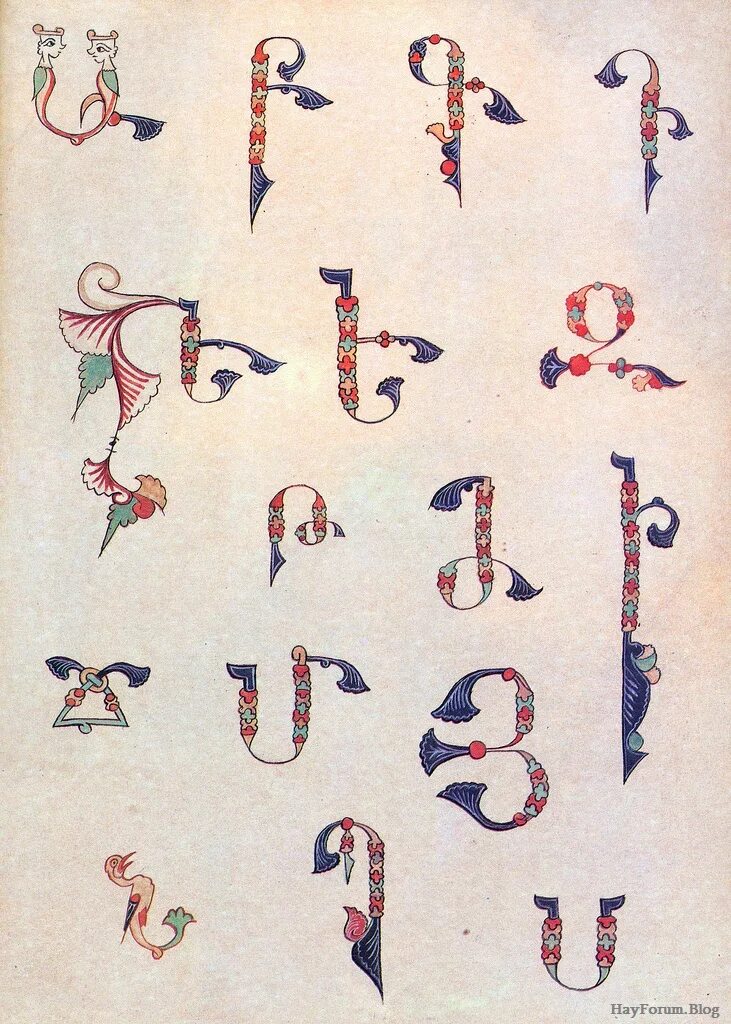 Ա Բ Գ Դ
Ե Ե Զ
Թ Ժ Ի
Ճ Մ Յ
Պ Ս
HayForum.Blog